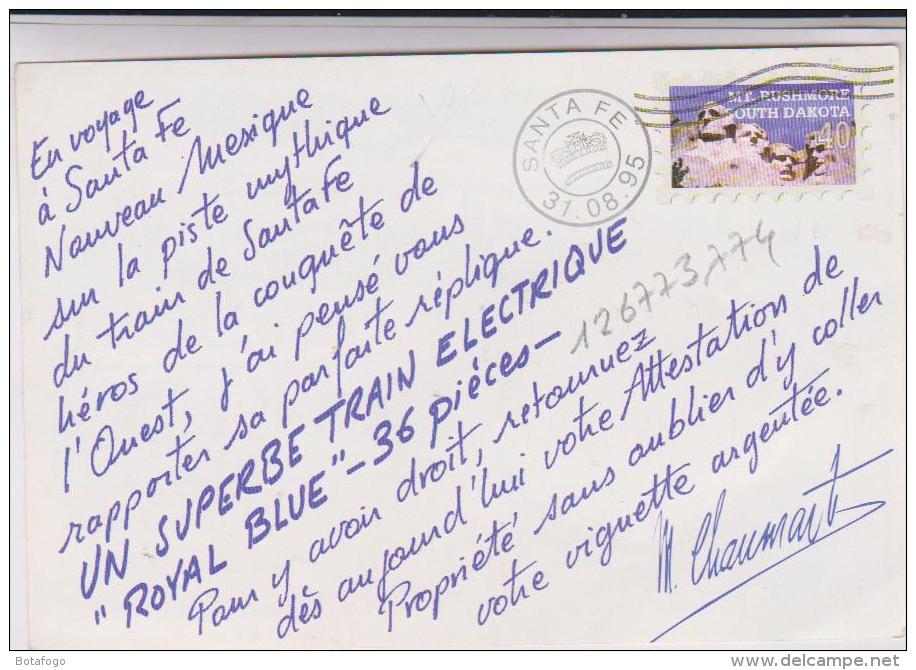 En voyage
à Santa Fe
Nouveau Mexique
sur la piste mythique
du train de Santa Fe
héros de la conquête de
l'Ouest, j'ai pensé vous
rapporter sa parfaite réplique.
UN SUPERBE TRAIN ELECTRIQUE
"ROYAL BLUE" - 36 pièces -
Pour y avoir droit, retournez
dès aujourd'hui votre Attestation de
Propriété sans oublier d'y coller
votre vignette argentée.
M. Chaumart
SANTA FE
31.08.95
MT. RUSHMORE
SOUTH DAKOTA
40
126773774
Botafogo
delcampe.net